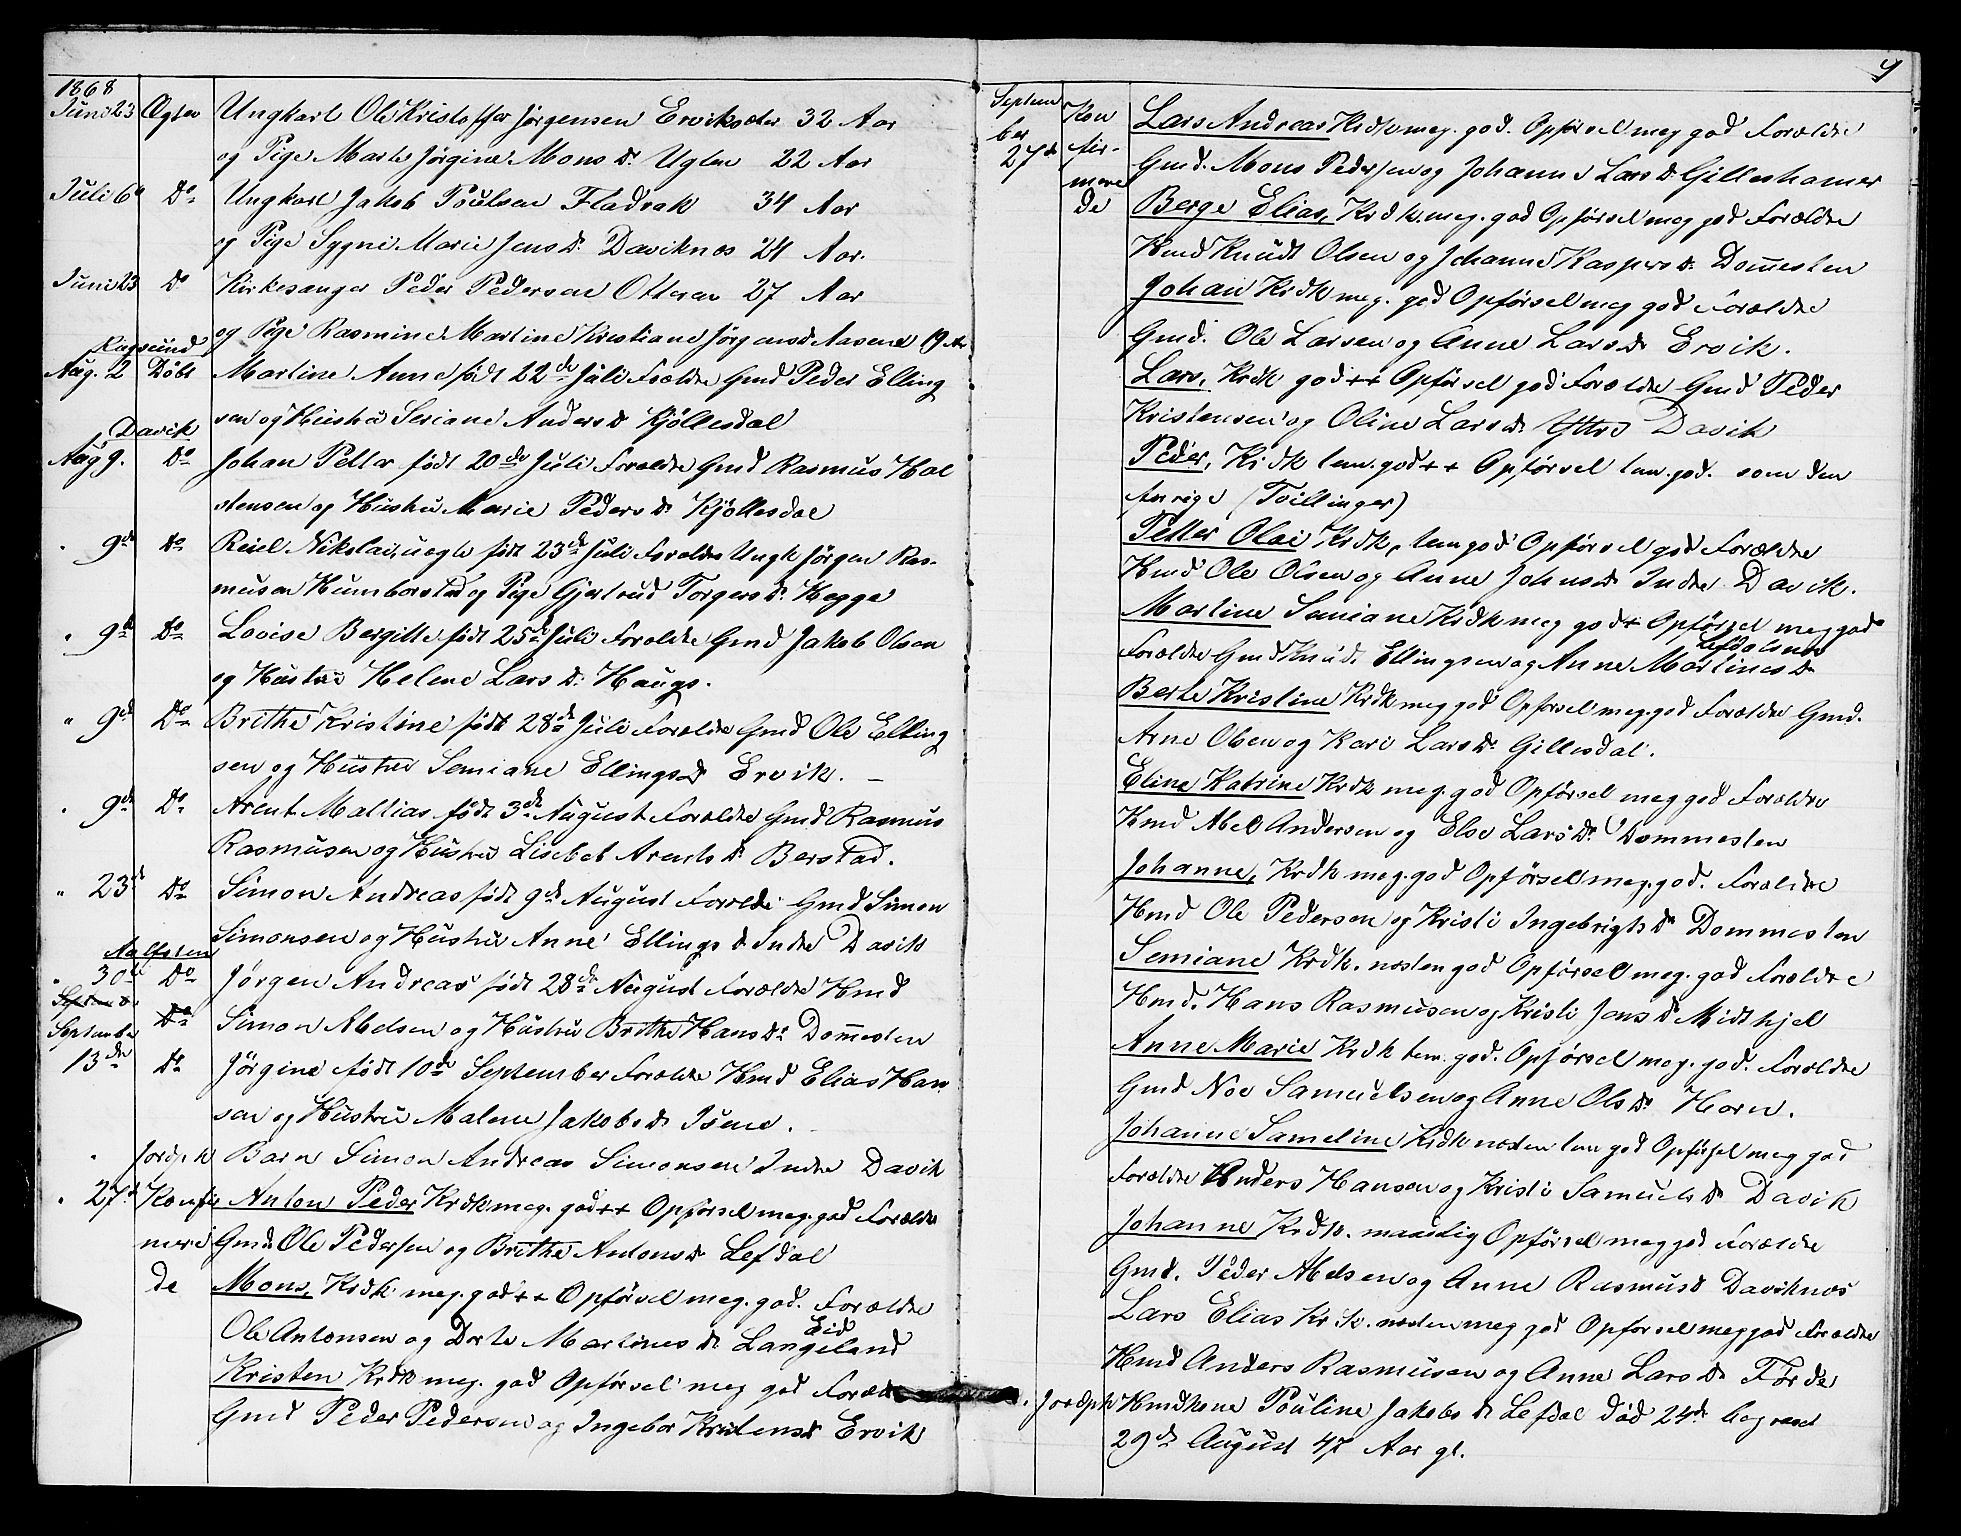 1868
Juni 23 Ægtev Ungkarl Ole Kristoffer Jørgensen Erviksæter 32 Aar
og Pige Marte Jørgine Mons D. Uglen 22 Aar
Juli 6te Do Ungkarl Jakob Poulsen Fladvak 34 Aar
og Pige Sygni Marie Jens D. Daviknæs 24 Aar.
Juni 23 Do Kirkesanger Peder Pedersen Otteren 27 Aar
og Pige Rasmine Martine Kristiane Jørgensd Aasene 19 Ar
Rugsund
Aug. 2 Døbt Martine Anne født 22de Juli Foreldre Gmd Peder Elling
sen og Hustru Seriane Anders D Kjöllesdal
Davik
Aug 9. Do Johan Petter født 20de Juli Foreldre Gmd Rasmus Hol
stensen og Hustru Marie Peders D. Kjöllesdal
" 9de Do Reiel Nikolai, uegte født 23de Juli Foreldre Ungk Jörgen Ras-
musen Humborstad og Pige Gjertrud Torgers D. Hegge
" 9de Do Lovise Bergitte født 25de Juli Foreldre Gmd Jakob Olsen
og Hustru Helene Lars D. Haugs.
" 9de Do Brithe Kristine født 28de Juli Foreldre Gmd Ole Elling
sen og Hustru Semiane Ellings D Ervik. –
" 9de Do Arent Mattias født 3de August Foreldre Gmd Rasmus
Rasmusen og Hustru Lisebet Arents D. Berstad.
" 23d Do Simon Andreas født 9de August Foreldre Gmd Simon
Simonsen og Hustru Anne Ellings D Indre Davik
Aalfoten
" 30te Do Jörgen Andreas født 28de August Foreldre Hmd
Do Simon Abelsen og Hustru Brithe Hans D. Dom̄esten
Septembe
13de Do Jörgine født 10de September Foreldre Hmd Elias Han
sen og Hustru Malene Jakobs D. Isene.
" Jordpk Barn Simon Andreas Simonsen Indre Davik
" 27de Konfir Anton Peder Krdk meg. god ++ Opførsel meg. god Foreldre
mere Gmd Ole Pedersen og Brithe Antons D. Lefdal
de Mons, Krdk meg. god ++ Opførsel meg. god. Foreldre
Eid
Ole Antonsen og Dorte Martinus D. Langeland
Kristen Krdk meg. god Opførsel meg god Foreldre
Gmd Peder Pedersen og Ingebor Kristens D Ervik
9
Septem Kon Lars Andreas Krdk meg. god. Opførsel meg god Foreldre
ber fir-
27de mere Gmd. Mons Pedersen og Johanne Lars D Gilleshamer
de Berge Elias, Krdk. meg. god Opførsel meg god Foreldre
Hmd Knudt Olsen og Johanne Kaspers D. Dom̄esten
Johan Krdk meg. god Opførsel meg god Foreldre
Gmd. Ole Larsen og Anne Lars D. Ervik.
Lars, Krdk god ++ Opførsel god Foreldre Gmd Peder
Kristensen og Oline Lars D. Yttre Davik
Peder, Krdk tem. god ++ Opførsel tem. god. som den
forrige (Tvillinger)
Petter Olai Krdk, tem god Opførsel god Foreldre
Hmd Ole Olsen og Anne Johns D Indre Davik.
Martine Semiane Krdk meg god + Opførsel meg god
Foreldre Gmd Knud. Ellingsen og Anne Martines D
Berte Kristine Krdk meg god Opførsel meg. god Foreldre Gmd.
Arne Olsen og Kari Lars D. Gillesdal.
Eline Katrine Krdk meg. god Opførsel meg god Foreldre
Hmd Abel Andersen og Else Lars D. Dommesten
Johanne, Krdk meg. god Opførsel meg. god. Foreldre
Hmd Ole Pedersen og Kristi Ingebrigts D. Dommesten
Semiane Krdk. nesten god Opførsel meg. god Foreldre
Hmd. Hans Rasmusen og Kristi Jens D. Midthjel
Anne Marie Krdk tem. god. Opførsel meg. god. Foreldre
Gmd Noe Samuelsen og Anne Ols D. Horn.
Johanne Sameline Krdk nesten tem god Opførsel meg god
Foreldre Anders Hansen og Kristi Samuels D. Davik
Johanne Krdk. maadelig Opførsel meg god Foreldre
Gmd. Peder Abelsen og Anne Rasmusd Daviknæs
Lars Elias Krdk. nesten meg god Opførsel meg god Foreldre
Hmd Anders Rasmusen og Anne Lars D. Förde
" Jordpk Hmdkone Pouline Jakobs D Lefdal död 24de begravet
29de August 47 Aar gl.